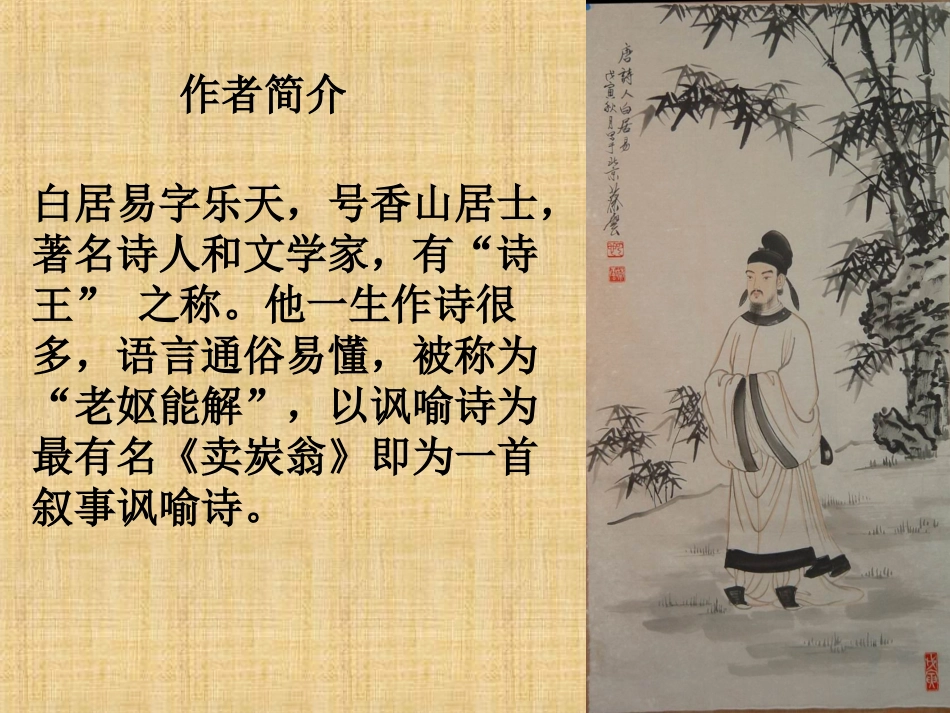 作者简介
白居易字乐天，号香山居士，
著名诗人和文学家，有“诗
王” 之称。他一生作诗很
多，语言通俗易懂，被称为
“老妪能解”，以讽喻诗为
最有名《卖炭翁》即为一首
叙事讽喻诗。
唐詩人白居易
戊寅秋月